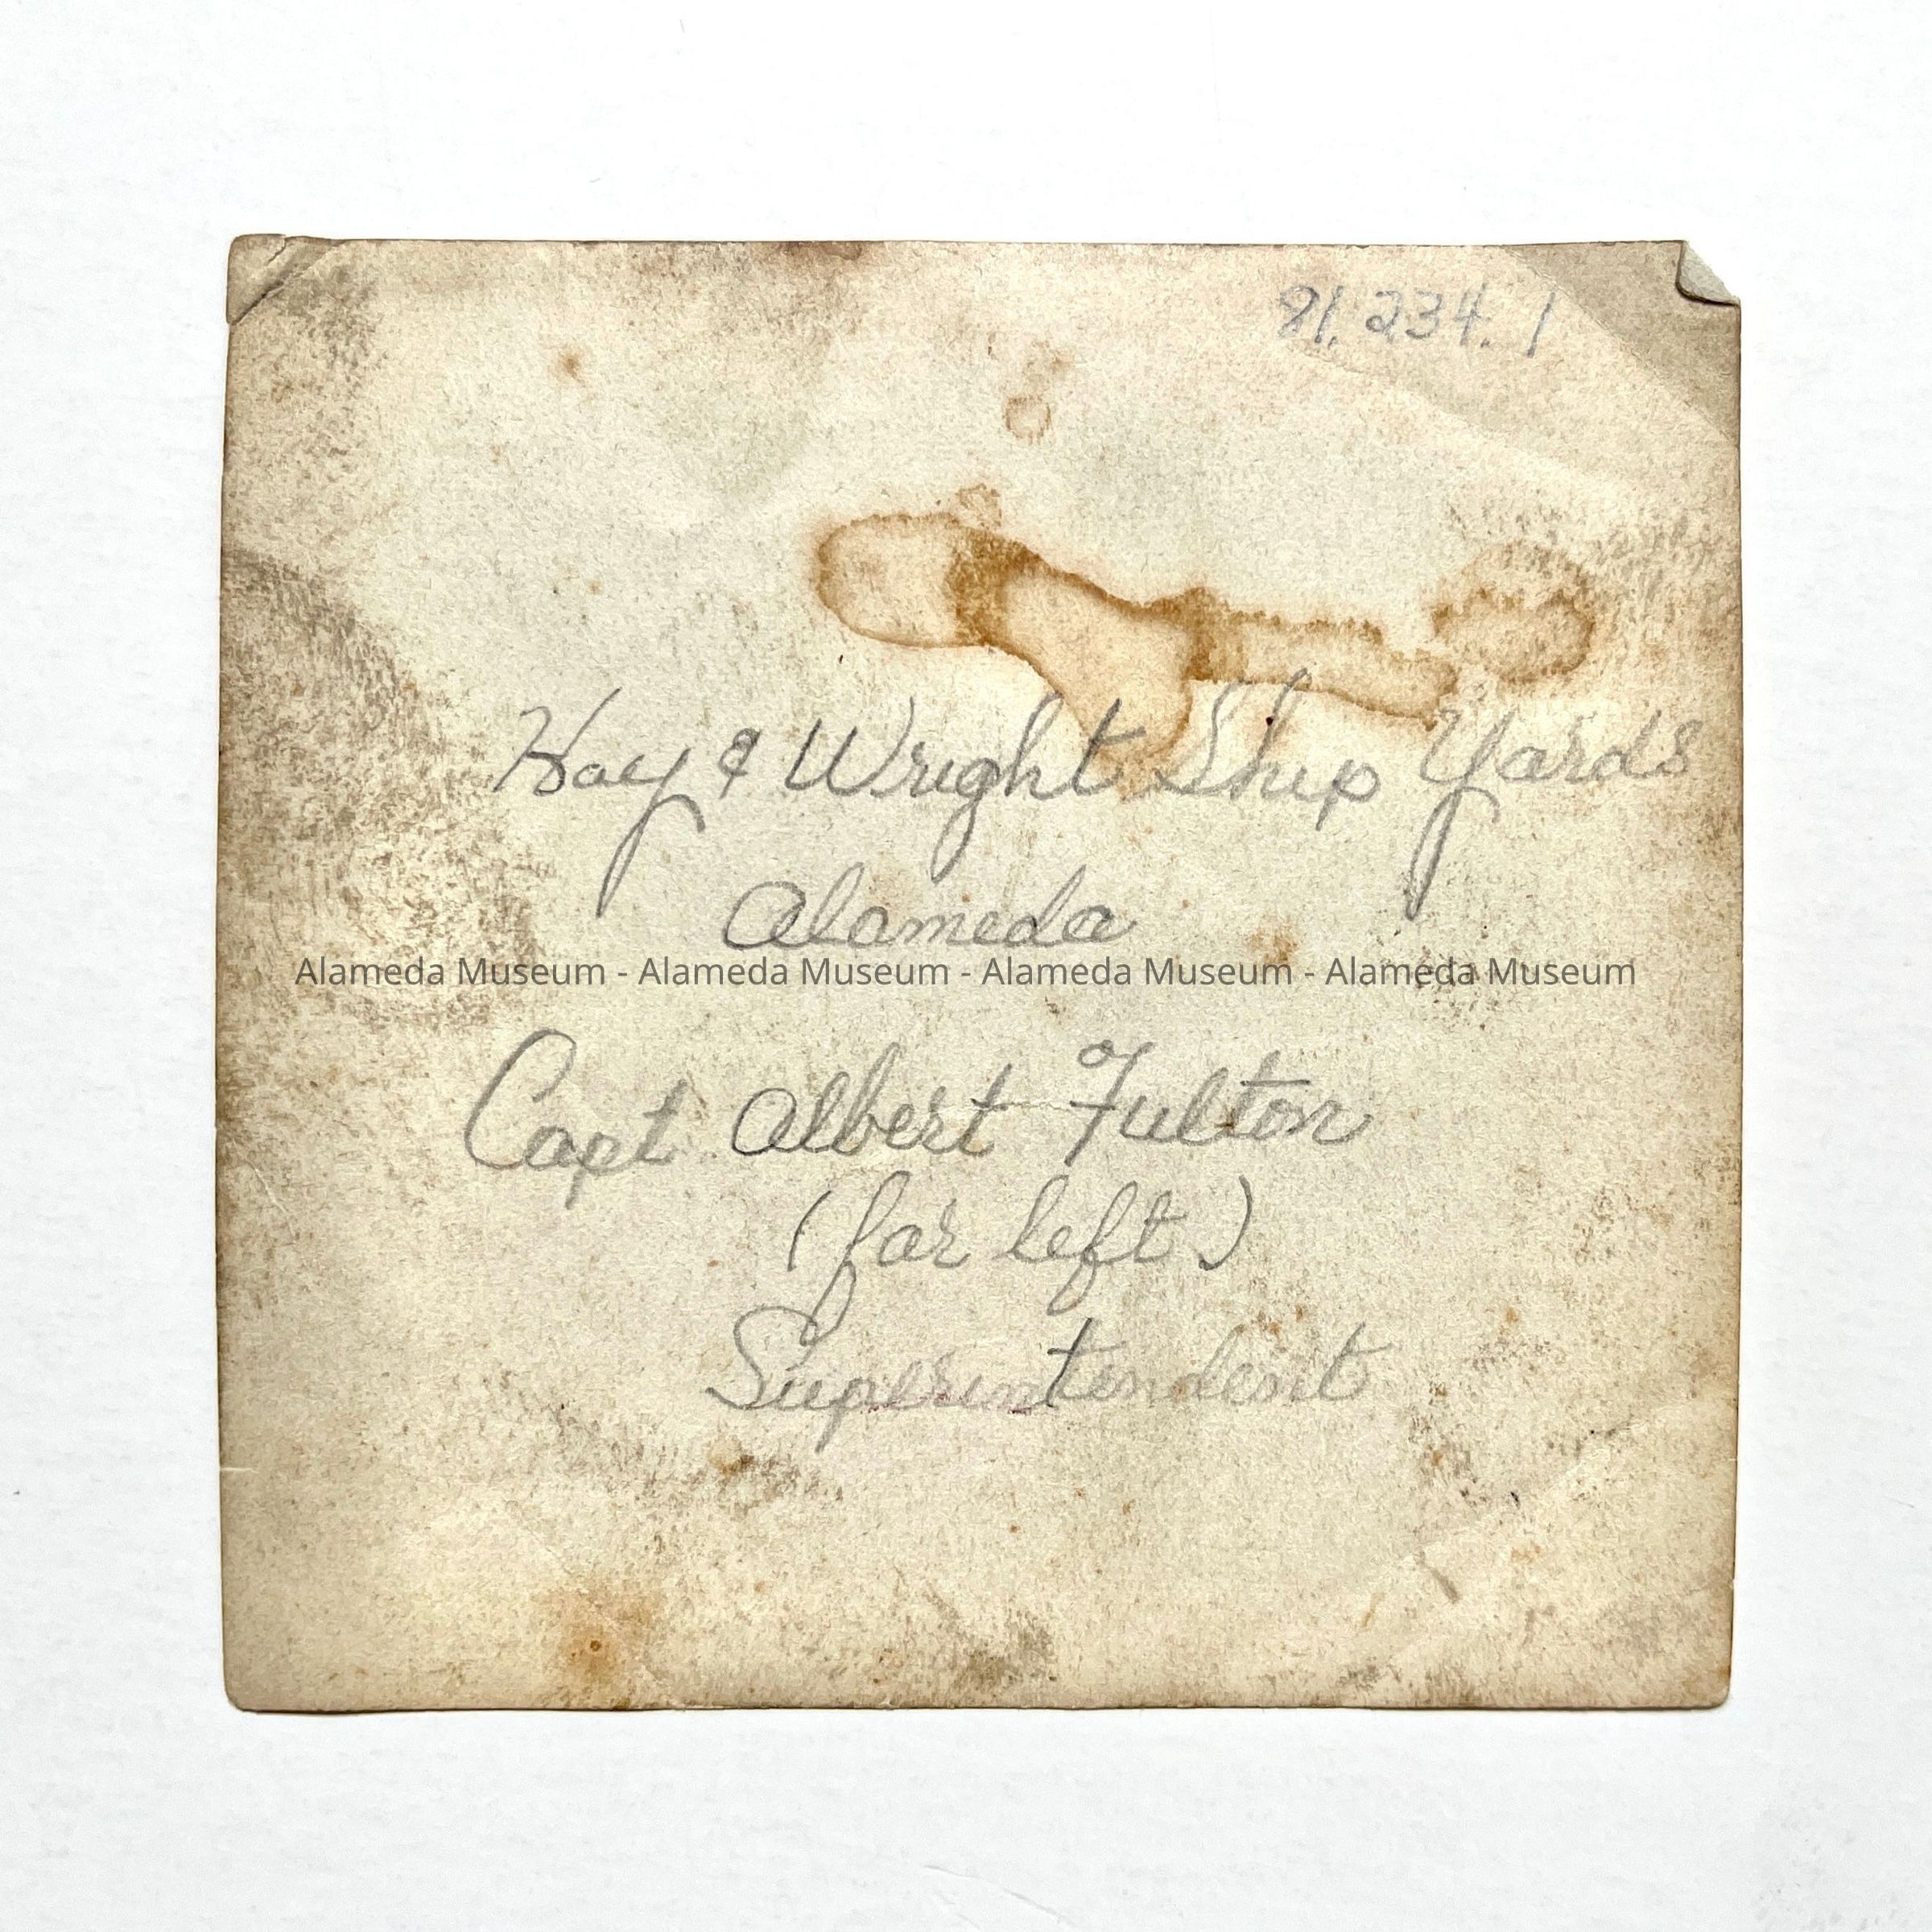 91.234.1
Hay & Wright Ship Yards
Alameda
Alameda Museum - Alameda Museum - Alameda Museum - Alameda Museum
Capt Albert Fulton
(far left)
Superintendent